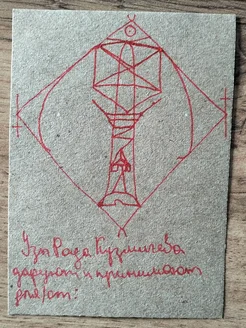 Узы Рода Кузмичёва
даруют и принимают